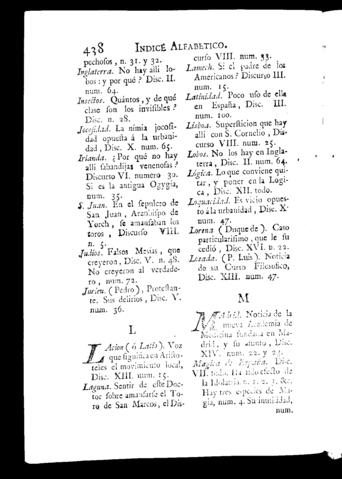 438 INDICE ALFABETICO.
pechosos, n. 31. y 32.
Inglaterra. No hay alli lo-
bos: y por qué? Disc. II.
num. 64.
Insectos. Quántos, y de qué
clase son los invisibles?
Disc. n. 28.
Jocosidad. La nimia jocosi-
dad opuesta á la urbani-
dad, Disc. X. num. 65.
Irlanda. ¿Por qué no hay
alli sabandijas venenosas?
Discurso VI. numero 30.
Si es la antigua Ogygia,
num. 35.
S. Juan. En el sepulcro de
San Juan, Arzobispo de
Yorch, se amansaban los
toros, Discurso VIII.
n. 5.
Judios. Falsos Mesias, que
creyeron, Disc. V. n. 48.
No creyeron al verdade-
ro, num. 72.
Jurieu. (Pedro), Protestan-
te. Sus delirios, Disc. V.
num. 36.
L
LAcion (ó Latio). Voz
que significa en Aristo-
teles el movimiento local,
Disc. XIII. num. 15.
Laguna. Sentir de este Doc-
tor sobre amansarse el To-
ro de San Marcos, el Dis-
curso VIII. num. 33.
Lamech. Si el padre de los
Americanos? Discurso III.
num. 15.
Latinidad. Poco uso de ella
en España, Disc. III.
num. 100.
Lisboa. Supersticion que hay
alli con S. Cornelio, Dis-
curso VIII. num. 25.
Lobos. No los hay en Ingla-
terra, Disc. II. num. 64.
Lógica. Lo que conviene qui-
tar, y poner en la Logi-
ca, Disc. XII. todo.
Loquacidad. Es vicio opues-
to á la urbanidad, Disc. X.
num. 47.
Lorena (Duque de). Caso
particularisimo, que le su-
cedió, Disc. XVI. n. 22.
Losada. (P. Luis). Noticia
de su Curso Filosofico,
Disc. XIII. num. 47.
M
MAdrid. Noticia de la
nueva Academia de
Medicina fundada en Ma-
drid, y su asunto, Disc.
XIV. num. 22. y 23.
Magica de España. Disc.
VII. todo. Ha sido efecto de
la Idolatria n. 1. 2. 3. &c.
Hay tres especies de Ma-
gia, num. 4. Su inutilidad,
num.